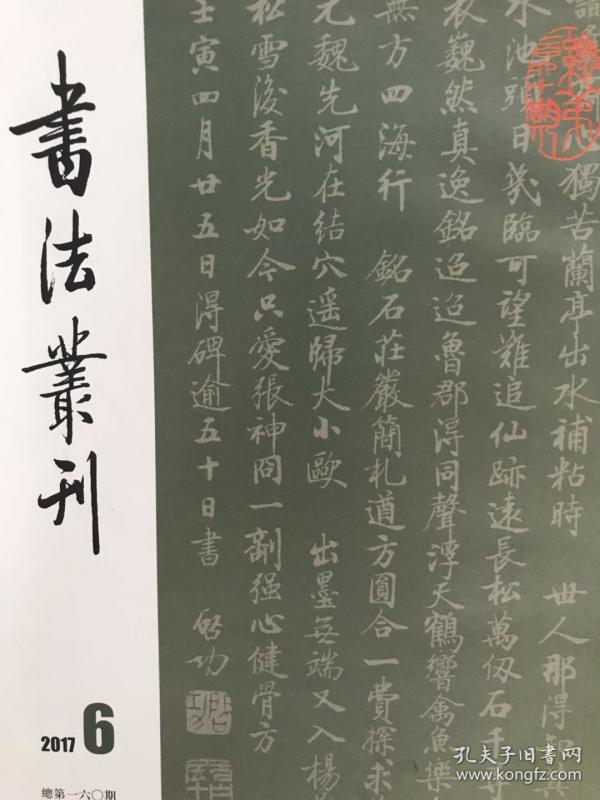 書法叢刊
2017 6
總第一六〇期
獨苦蘭亭出水補粘時 世人那得知其
水池頭日幾臨可望難追仙跡遠長松萬仞石千尋
衣巍然真逸銘迢迢魯郡得同聲浮天鶴響禽魚樂
無方四海行 銘石莊嚴簡札遒方圓合一費探求
元魏先河在結穴遥歸大小歐 出墨無端又入楊
松雪後香光如今只愛張神冏一劑强心健骨方
壬寅四月廿五日得碑逾五十日書 啓功
孔夫子旧书网
www.kongfz.com